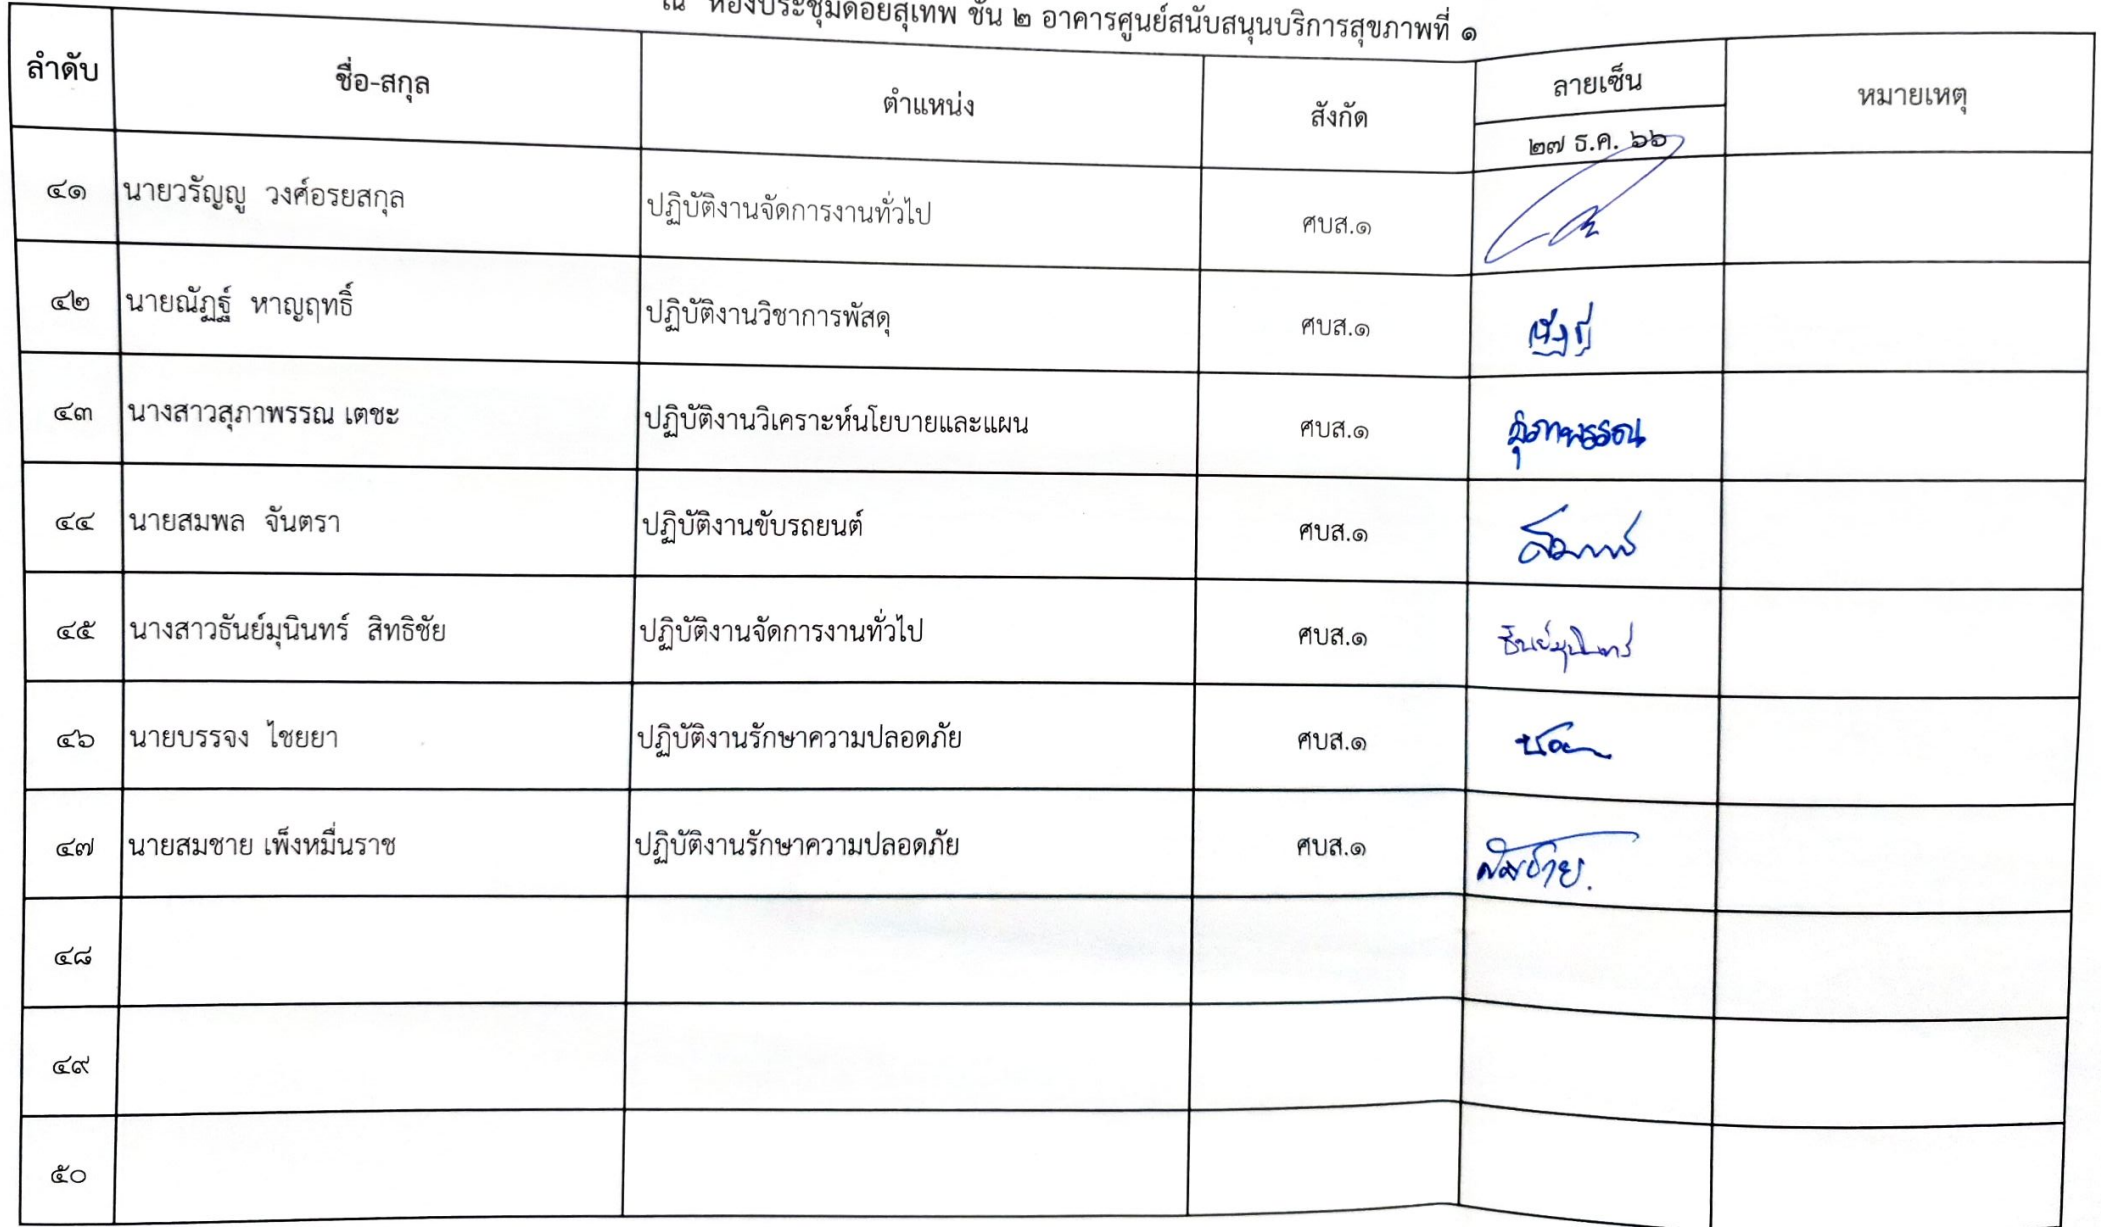 ณ ห้องประชุมดอยสุเทพ ชั้น ๒ อาคารศูนย์สนับสนุนบริการสุขภาพที่ ๑
ลำดับ ชื่อ-สกุล ตำแหน่ง สังกัด ลายเซ็น หมายเหตุ
๒๗ ธ.ค. ๖๖
๔๑ นายวรัญญู วงศ์อรยสกุล ปฏิบัติงานจัดการงานทั่วไป ศบส.๑
๔๒ นายณัฏฐ์ หาญฤทธิ์ ปฏิบัติงานวิชาการพัสดุ ศบส.๑ ณัฏฐ์
๔๓ นางสาวสุภาพรรณ เตชะ ปฏิบัติงานวิเคราะห์นโยบายและแผน ศบส.๑ สุภาพรรณ
๔๔ นายสมพล จันตรา ปฏิบัติงานขับรถยนต์ ศบส.๑
๔๕ นางสาวธันย์มุนินทร์ สิทธิชัย ปฏิบัติงานจัดการงานทั่วไป ศบส.๑ ธันย์มุนินทร์
๔๖ นายบรรจง ไชยยา ปฏิบัติงานรักษาความปลอดภัย ศบส.๑
๔๗ นายสมชาย เพ็งหมื่นราช ปฏิบัติงานรักษาความปลอดภัย ศบส.๑ สมชาย.
๔๘
๔๙
๕๐